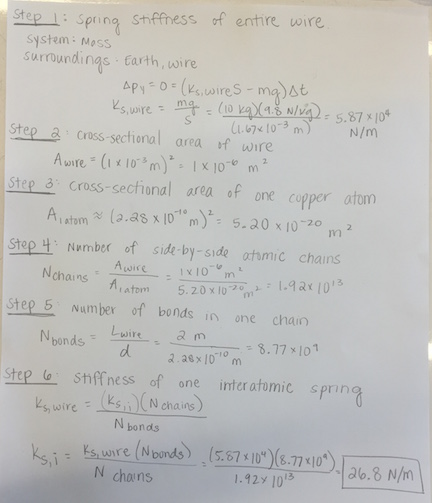 Step 1: Spring Stiffness of entire wire.
System: Mass
Surroundings: Earth, wire
Δpy = 0 = (ks,wire S - mg)Δt
Ks,wire = mg/S = (10 kg)(9.8 N/kg)/(1.67×10^-3 m) = 5.87×10^4 N/m
Step 2: cross-sectional area of wire
Awire = (1 × 10^-3 m)^2 = 1 × 10^-6 m^2
Step 3: cross-sectional area of one copper atom
A1atom ≈ (2.28 × 10^-10 m)^2 = 5.20 × 10^-20 m^2
Step 4: Number of side-by-side atomic chains
Nchains = Awire/A1atom = 1×10^-6 m^2/5.20×10^-20 m^2 = 1.92×10^13
Step 5: Number of bonds in one chain
Nbonds = Lwire/d = 2 m/2.28×10^-10 m = 8.77×10^9
Step 6: Stiffness of one interatomic spring
Ks,wire = (Ks,i)(Nchains)/Nbonds
Ks,i = Ks,wire (Nbonds)/N chains = (5.87×10^4)(8.77×10^9)/1.92×10^13 = 26.8 N/m